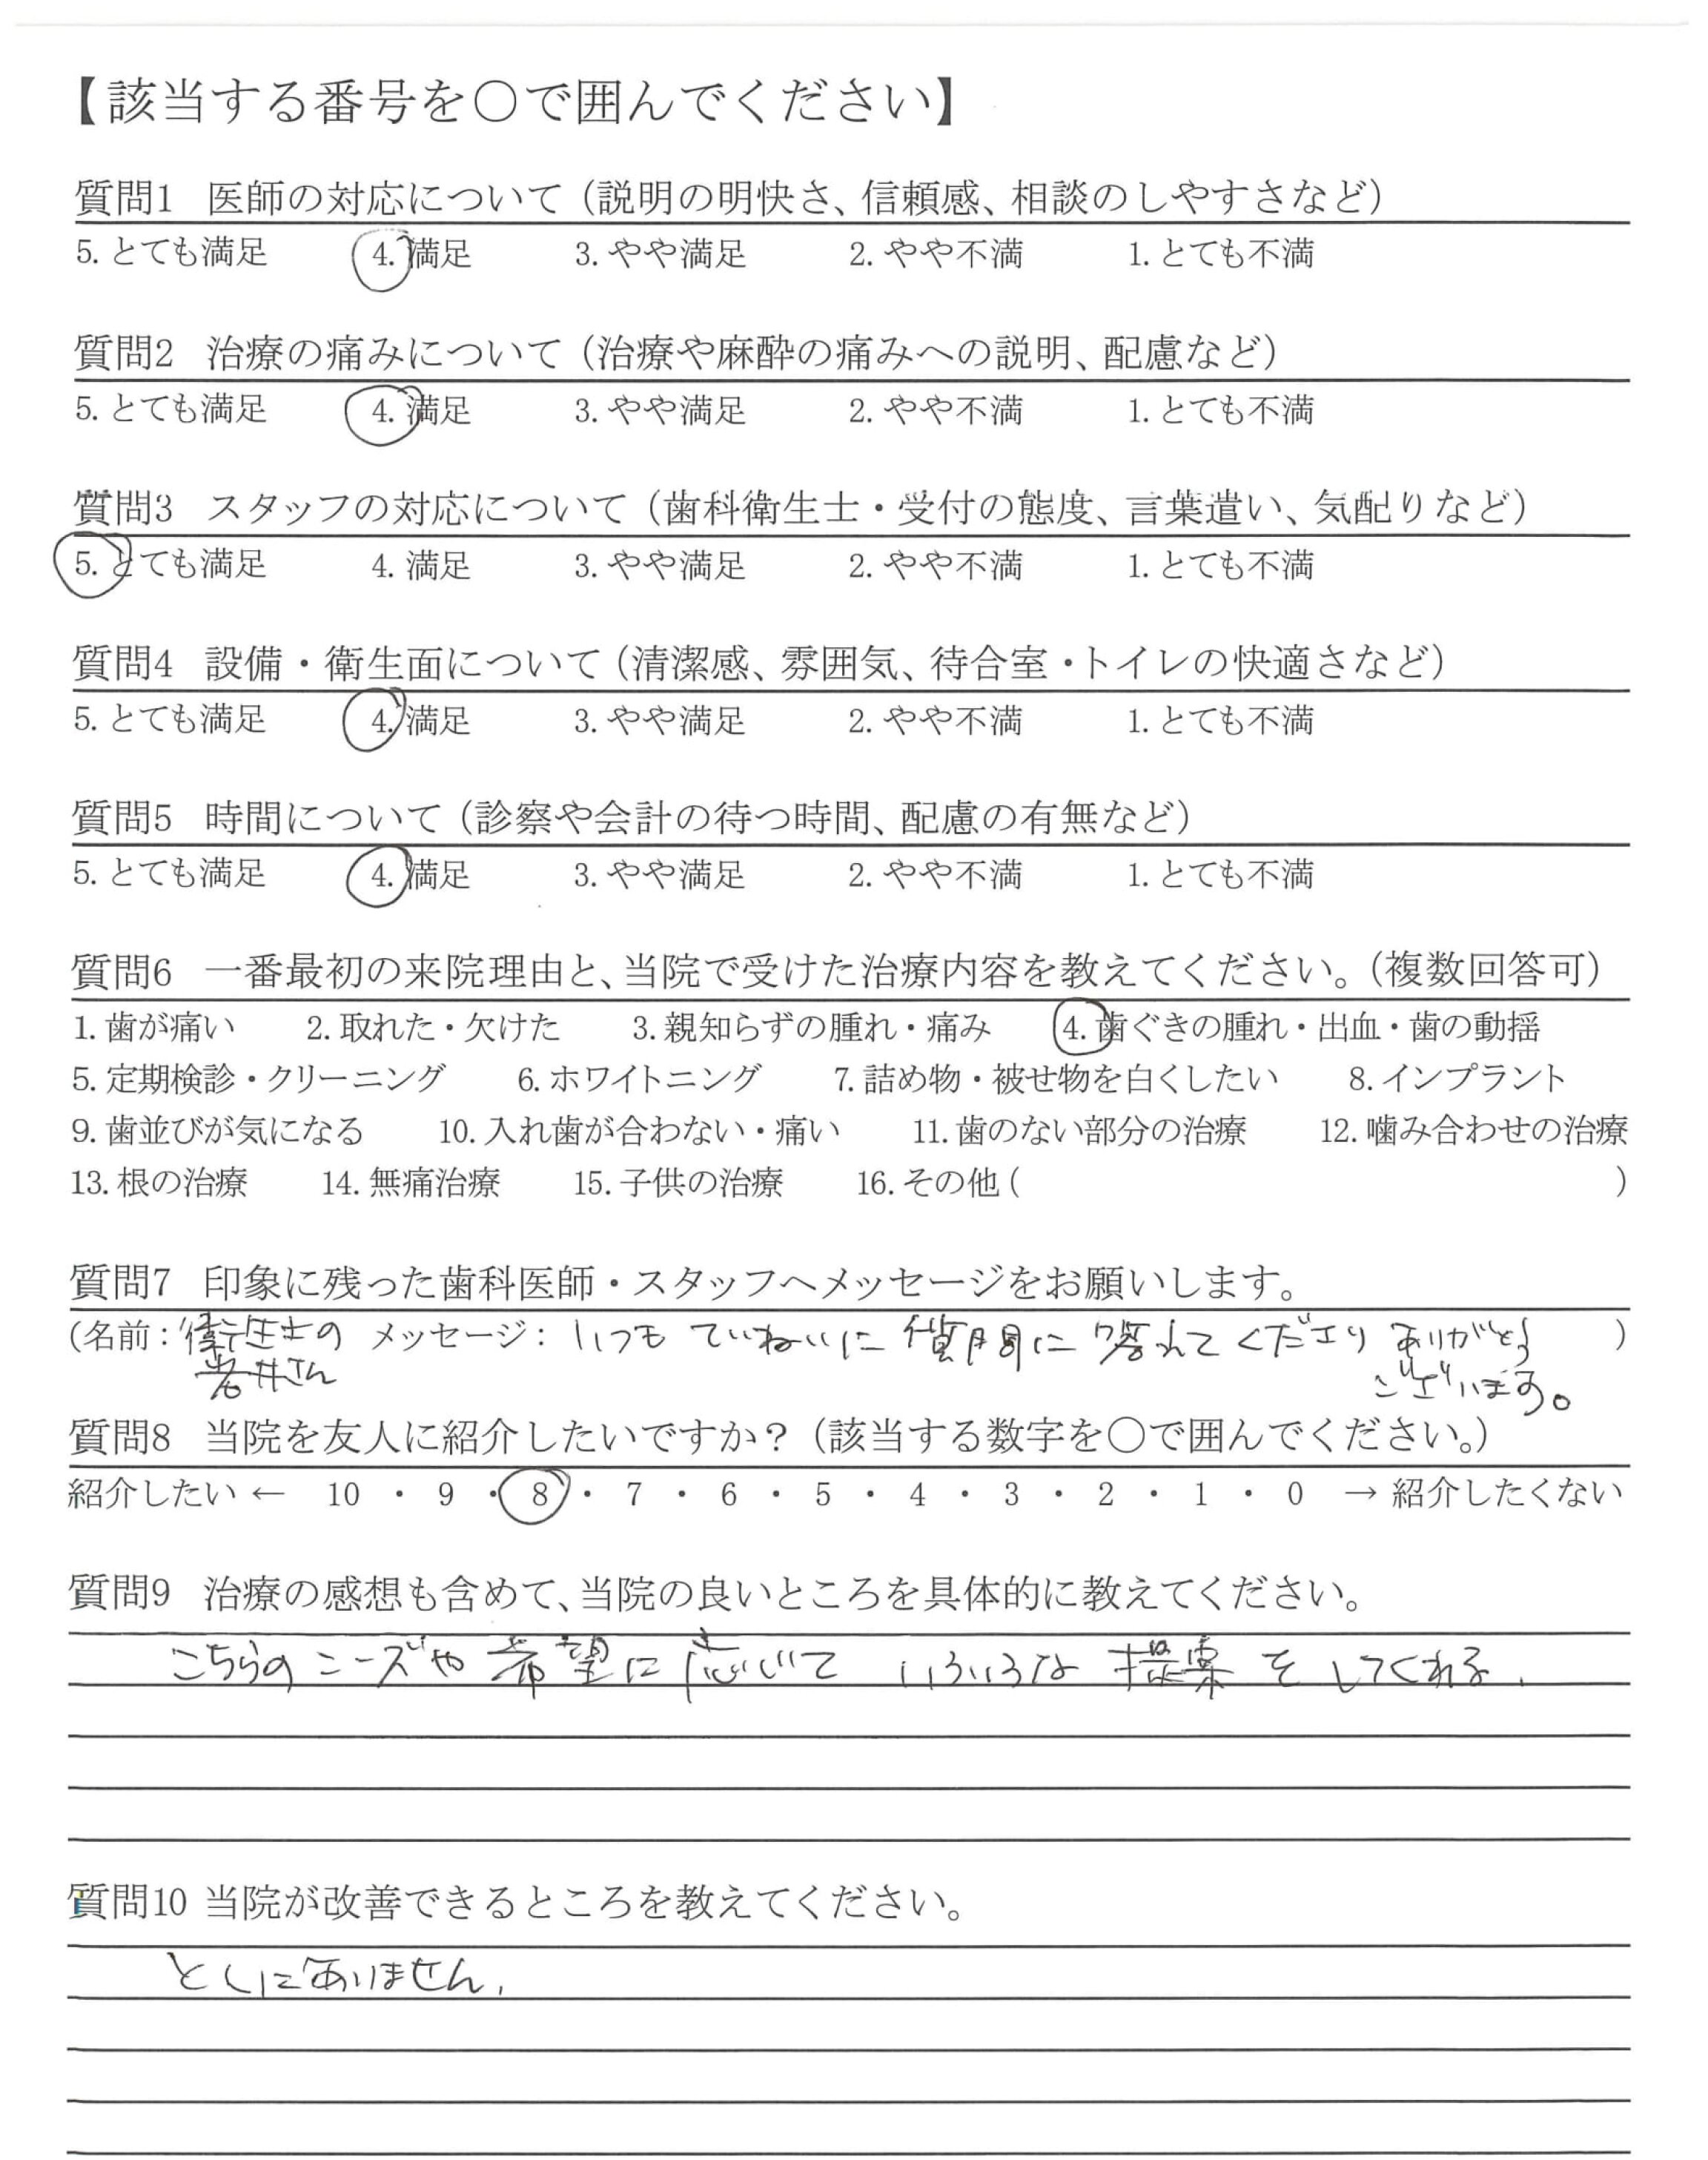 【該当する番号を○で囲んでください】
質問1 医師の対応について（説明の明快さ、信頼感、相談のしやすさなど）
5. とても満足 4. 満足 3. やや満足 2. やや不満 1. とても不満
質問2 治療の痛みについて（治療や麻酔の痛みへの説明、配慮など）
5. とても満足 4. 満足 3. やや満足 2. やや不満 1. とても不満
質問3 スタッフの対応について（歯科衛生士・受付の態度、言葉遣い、気配りなど）
5. とても満足 4. 満足 3. やや満足 2. やや不満 1. とても不満
質問4 設備・衛生面について（清潔感、雰囲気、待合室・トイレの快適さなど）
5. とても満足 4. 満足 3. やや満足 2. やや不満 1. とても不満
質問5 時間について（診察や会計の待つ時間、配慮の有無など）
5. とても満足 4. 満足 3. やや満足 2. やや不満 1. とても不満
質問6 一番最初の来院理由と、当院で受けた治療内容を教えてください。（複数回答可）
1. 歯が痛い 2. 取れた・欠けた 3. 親知らずの腫れ・痛み 4. 歯ぐきの腫れ・出血・歯の動揺
5. 定期検診・クリーニング 6. ホワイトニング 7. 詰め物・被せ物を白くしたい 8. インプラント
9. 歯並びが気になる 10. 入れ歯が合わない・痛い 11. 歯のない部分の治療 12. 噛み合わせの治療
13. 根の治療 14. 無痛治療 15. 子供の治療 16. その他（ ）
質問7 印象に残った歯科医師・スタッフへメッセージをお願いします。
（名前：衛生士の メッセージ：いつも ていねいに 質問に 答えて くださり ありがとう ）
岩井さん ございます。
質問8 当院を友人に紹介したいですか？（該当する数字を○で囲んでください。）
紹介したい ← 10 ・ 9 ・ 8 ・ 7 ・ 6 ・ 5 ・ 4 ・ 3 ・ 2 ・ 1 ・ 0 → 紹介したくない
質問9 治療の感想も含めて、当院の良いところを具体的に教えてください。
こちらの ニーズや 希望に 応じて いろいろな 提案を してくれる.
質問10 当院が改善できるところを教えてください。
とくにありません.